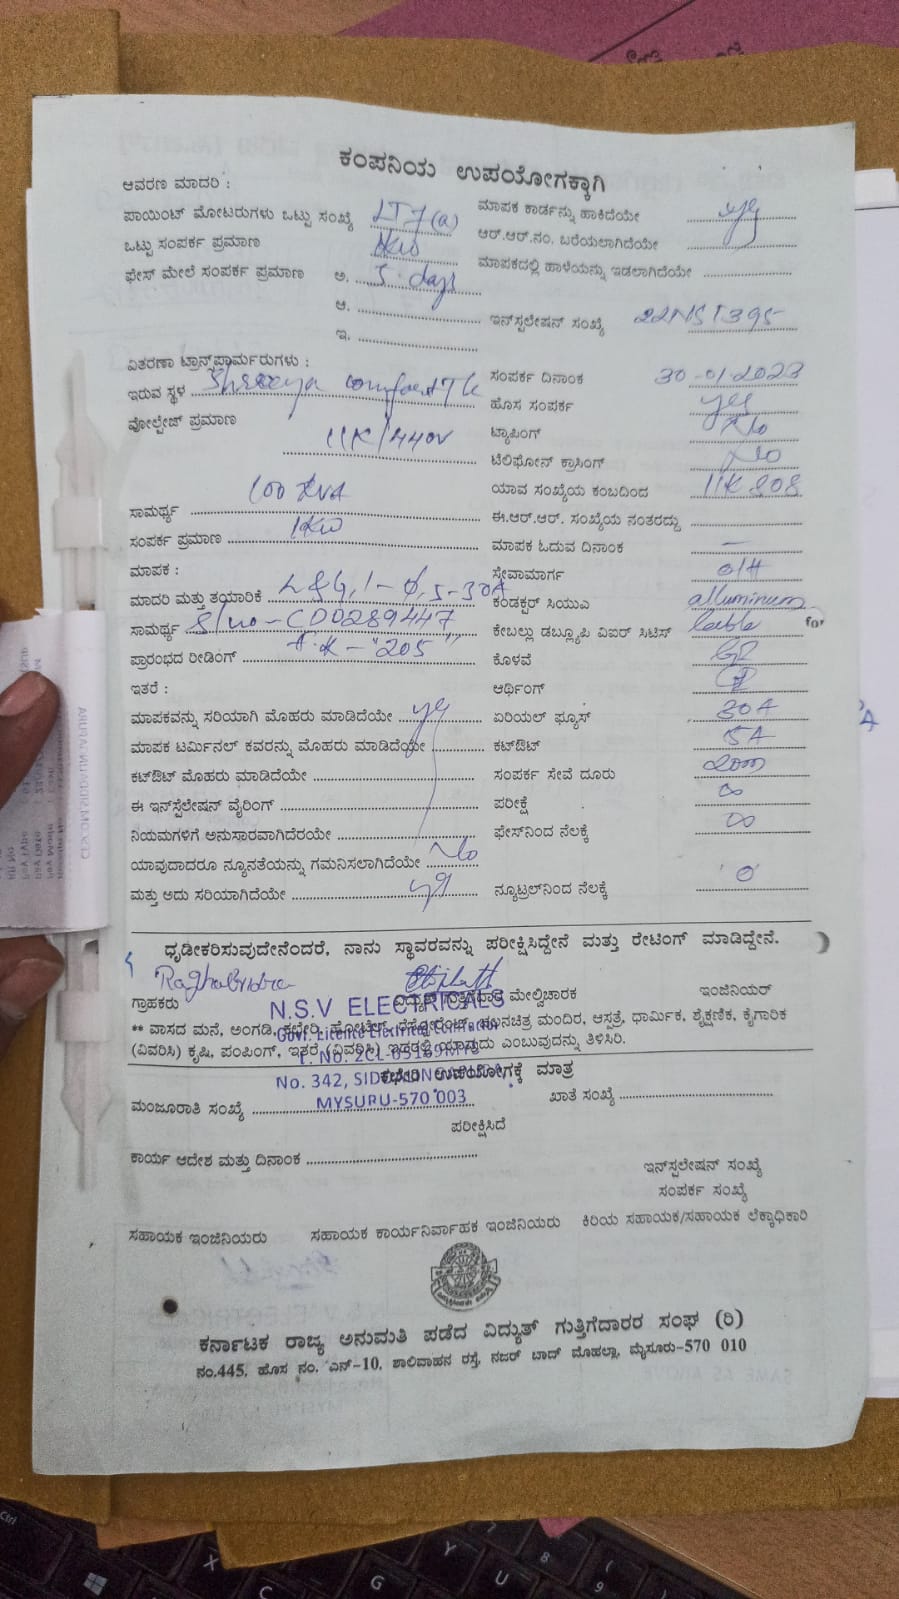 ಕಂಪನಿಯ ಉಪಯೋಗಕ್ಕಾಗಿ
ಆವರಣ ಮಾದರಿ :
ಪಾಯಿಂಟ್ ಮೋಟರುಗಳು ಒಟ್ಟು ಸಂಖ್ಯೆ LT7(a)
ಮಾಪಕ ಕಾರ್ಡನ್ನು ಹಾಕಿದೆಯೇ yes
ಒಟ್ಟು ಸಂಪರ್ಕ ಪ್ರಮಾಣ 1KW
ಆರ್.ಆರ್.ನಂ. ಬರೆಯಲಾಗಿದೆಯೇ
ಫೇಸ್ ಮೇಲೆ ಸಂಪರ್ಕ ಪ್ರಮಾಣ ಅ. 5 days
ಮಾಪಕದಲ್ಲಿ ಹಾಳೆಯನ್ನು ಇಡಲಾಗಿದೆಯೇ
ಆ.
ಇನ್‌ಸ್ಟಲೇಷನ್ ಸಂಖ್ಯೆ 22NST395
ಇ.
ವಿತರಣಾ ಟ್ರಾನ್ಸ್‌ಫಾರ್ಮರುಗಳು :
ಇರುವ ಸ್ಥಳ Shreeya comfort Tc
ಸಂಪರ್ಕ ದಿನಾಂಕ 30-01-2023
ವೋಲ್ಟೇಜ್ ಪ್ರಮಾಣ
ಹೊಸ ಸಂಪರ್ಕ yes
11K/440V
ಟ್ಯಾಪಿಂಗ್ No
ಟೆಲಿಫೋನ್ ಕ್ರಾಸಿಂಗ್ No
ಸಾಮರ್ಥ್ಯ 100 KVA
ಯಾವ ಸಂಖ್ಯೆಯ ಕಂಬದಿಂದ 11K 808
ಈ.ಆರ್.ಆರ್. ಸಂಖ್ಯೆಯ ನಂತರದ್ದು
ಸಂಪರ್ಕ ಪ್ರಮಾಣ 1KW
ಮಾಪಕ ಓದುವ ದಿನಾಂಕ —
ಮಾಪಕ :
ಸೇವಾಮಾರ್ಗ O/H
ಮಾದರಿ ಮತ್ತು ತಯಾರಿಕೆ L&G, 1-Φ, 5-30A
ಕಂಡಕ್ಟರ್ ಸಿಯುವಿ alluminum
ಸಾಮರ್ಥ್ಯ S/no-CD0289447
ಕೇಬಲ್ಲು ಡಬ್ಲ್ಯೂಪಿ ವಿಐರ್ ಸಿಟಿಸ್ Cable
for
ಪ್ರಾರಂಭದ ರೀಡಿಂಗ್ "205"
ಕೊಳವೆ GI
ಇತರೆ :
ಆರ್ಥಿಂಗ್
ಮಾಪಕವನ್ನು ಸರಿಯಾಗಿ ಮೊಹರು ಮಾಡಿದೆಯೇ yes
ಏರಿಯಲ್ ಫ್ಯೂಸ್ 30A
ಮಾಪಕ ಟರ್ಮಿನಲ್ ಕವರನ್ನು ಮೊಹರು ಮಾಡಿದೆಯೇ
ಕಟ್‌ಔಟ್ 15A
ಕಟ್‌ಔಟ್ ಮೊಹರು ಮಾಡಿದೆಯೇ
ಸಂಪರ್ಕ ಸೇವೆ ದೂರು 20m
ಈ ಇನ್‌ಸ್ಟೆಲೇಷನ್ ವೈರಿಂಗ್
ಪರೀಕ್ಷೆ ∞
ನಿಯಮಗಳಿಗೆ ಅನುಸಾರವಾಗಿದೆರೆಯೇ
ಫೇಸ್‌ನಿಂದ ನೆಲಕ್ಕೆ ∞
ಯಾವುದಾದರೂ ನ್ಯೂನತೆಯನ್ನು ಗಮನಿಸಲಾಗಿದೆಯೇ No
ಮತ್ತು ಅದು ಸರಿಯಾಗಿದೆಯೇ yes
ನ್ಯೂಟ್ರಲ್‌ನಿಂದ ನೆಲಕ್ಕೆ '0'
ಧೃಡೀಕರಿಸುವುದೇನೆಂದರೆ, ನಾನು ಸ್ಥಾವರವನ್ನು ಪರೀಕ್ಷಿಸಿದ್ದೇನೆ ಮತ್ತು ರೇಟಿಂಗ್ ಮಾಡಿದ್ದೇನೆ.
Raghabendra
ಗ್ರಾಹಕರು
ವಿದ್ಯುತ್ ಗುತ್ತಿಗೆದಾರ ಮೇಲ್ವಿಚಾರಕ
ಇಂಜಿನಿಯರ್
N.S.V ELECTRICALS
** ವಾಸದ ಮನೆ, ಅಂಗಡಿ, ಕಛೇರಿ, ಹೋಟೆಲ್, ರೆಸ್ಟೋರೆಂಟ್, ಚಲನಚಿತ್ರ ಮಂದಿರ, ಆಸ್ಪತ್ರೆ, ಧಾರ್ಮಿಕ, ಶೈಕ್ಷಣಿಕ, ಕೈಗಾರಿಕ
Govt. Licence Electrical Contractor
(ವಿವರಿಸಿ) ಕೃಷಿ, ಪಂಪಿಂಗ್, ಇತರೆ (ವಿವರಿಸಿ) ಇದರಲ್ಲಿ ಯಾವುದು ಎಂಬುವುದನ್ನು ತಿಳಿಸಿರಿ.
ಕಛೇರಿ ಉಪಯೋಗಕ್ಕೆ ಮಾತ್ರ
No. 342,
MYSURU-570 003
ಮಂಜೂರಾತಿ ಸಂಖ್ಯೆ
ಖಾತೆ ಸಂಖ್ಯೆ
ಪರೀಕ್ಷಿಸಿದೆ
ಕಾರ್ಯ ಆದೇಶ ಮತ್ತು ದಿನಾಂಕ
ಇನ್‌ಸ್ಟಲೇಷನ್ ಸಂಖ್ಯೆ
ಸಂಪರ್ಕ ಸಂಖ್ಯೆ
ಸಹಾಯಕ ಇಂಜಿನಿಯರು
ಸಹಾಯಕ ಕಾರ್ಯನಿರ್ವಾಹಕ ಇಂಜಿನಿಯರು
ಕಿರಿಯ ಸಹಾಯಕ/ಸಹಾಯಕ ಲೆಕ್ಕಾಧಿಕಾರಿ
ಕರ್ನಾಟಕ ರಾಜ್ಯ ಅನುಮತಿ ಪಡೆದ ವಿದ್ಯುತ್ ಗುತ್ತಿಗೆದಾರರ ಸಂಘ (ರಿ)
ನಂ.445, ಹೊಸ ನಂ. ಎನ್-10, ಶಾಲಿವಾಹನ ರಸ್ತೆ, ನಜರ್ ಬಾದ್ ಮೊಹಲ್ಲಾ, ಮೈಸೂರು-570 010